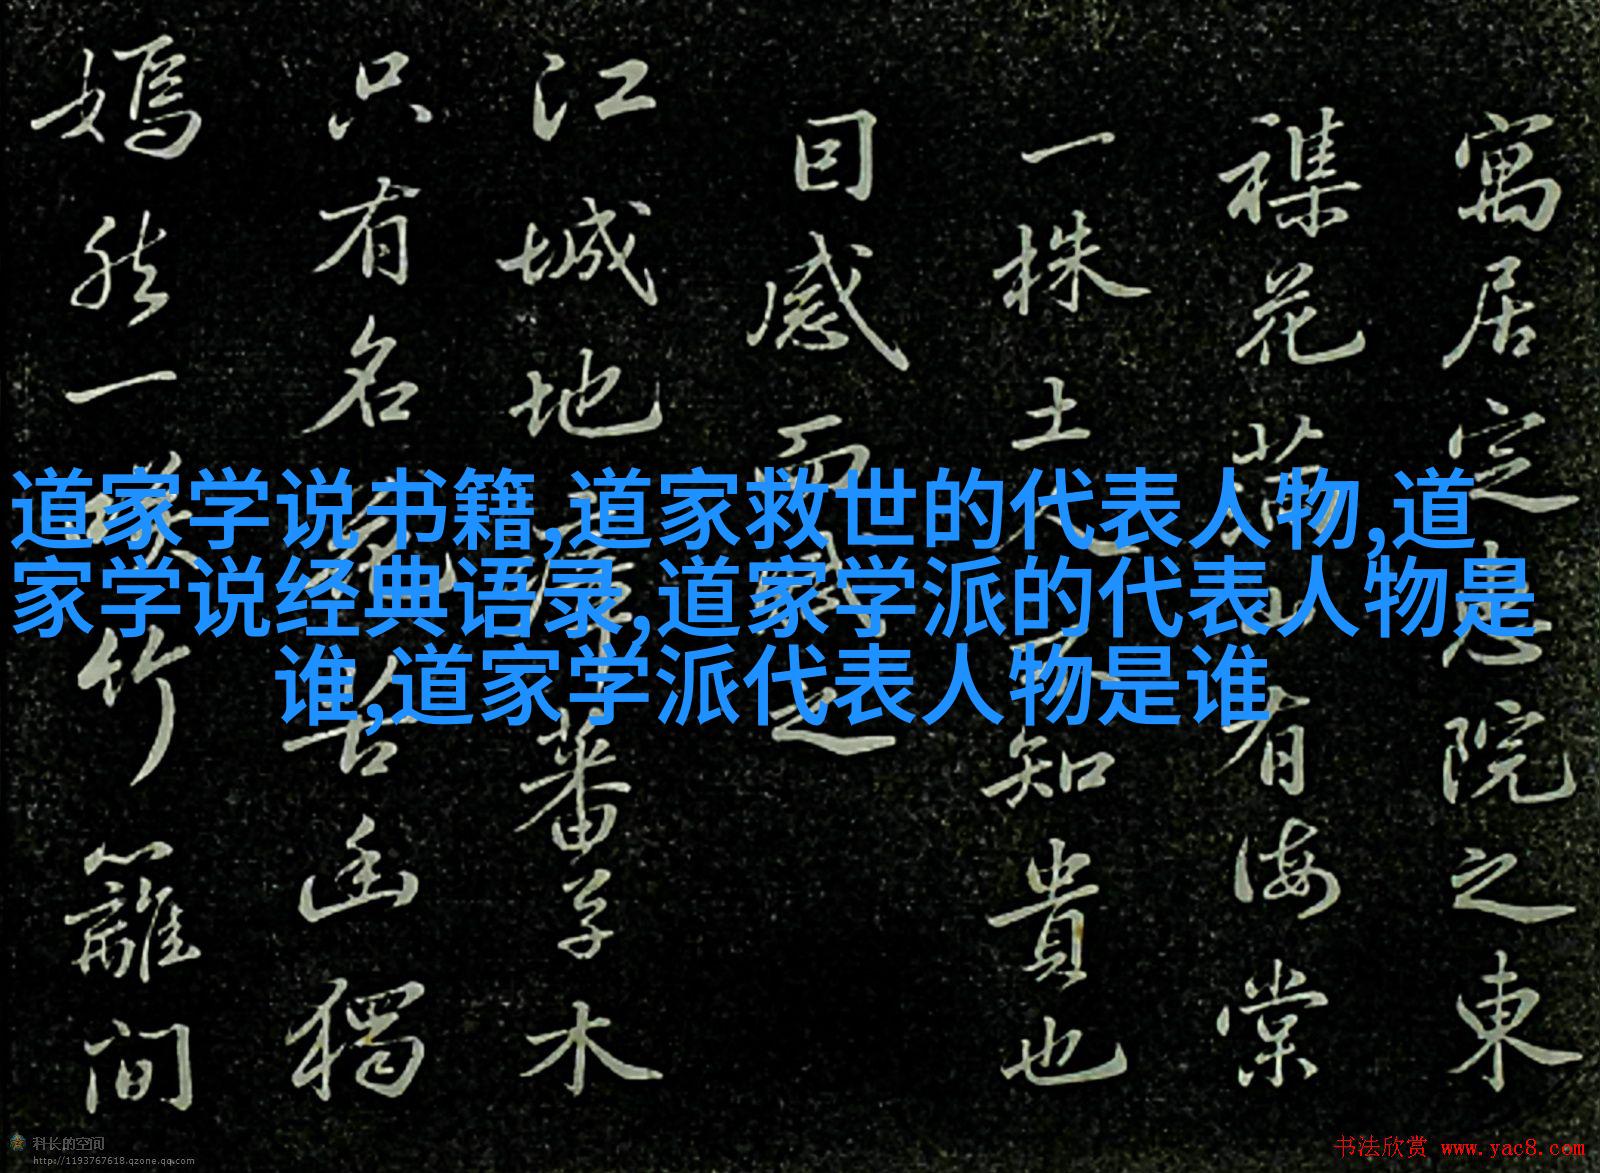 道家学说书籍,道家救世的代表人物,道
家学说经典语录,道家学派的代表人物是
谁,道家学派代表人物是谁
寓居定惠院之東
襍花滿山有海棠
一株土人不知貴也
因感而之
江城地瘴蕃草木
只有名花苦幽獨
嫣然一笑竹籬間
科长的空间
http://1193767618.qzone.qq.com
书法欣赏 www.yac8.com